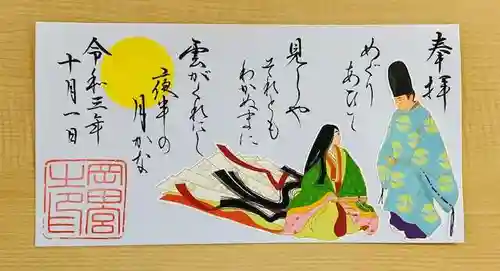 奉拝
めぐり
あひて
見しや
それとも
わかぬまに
雲がくれにし
夜半の
月かな
令和三年
十月一日